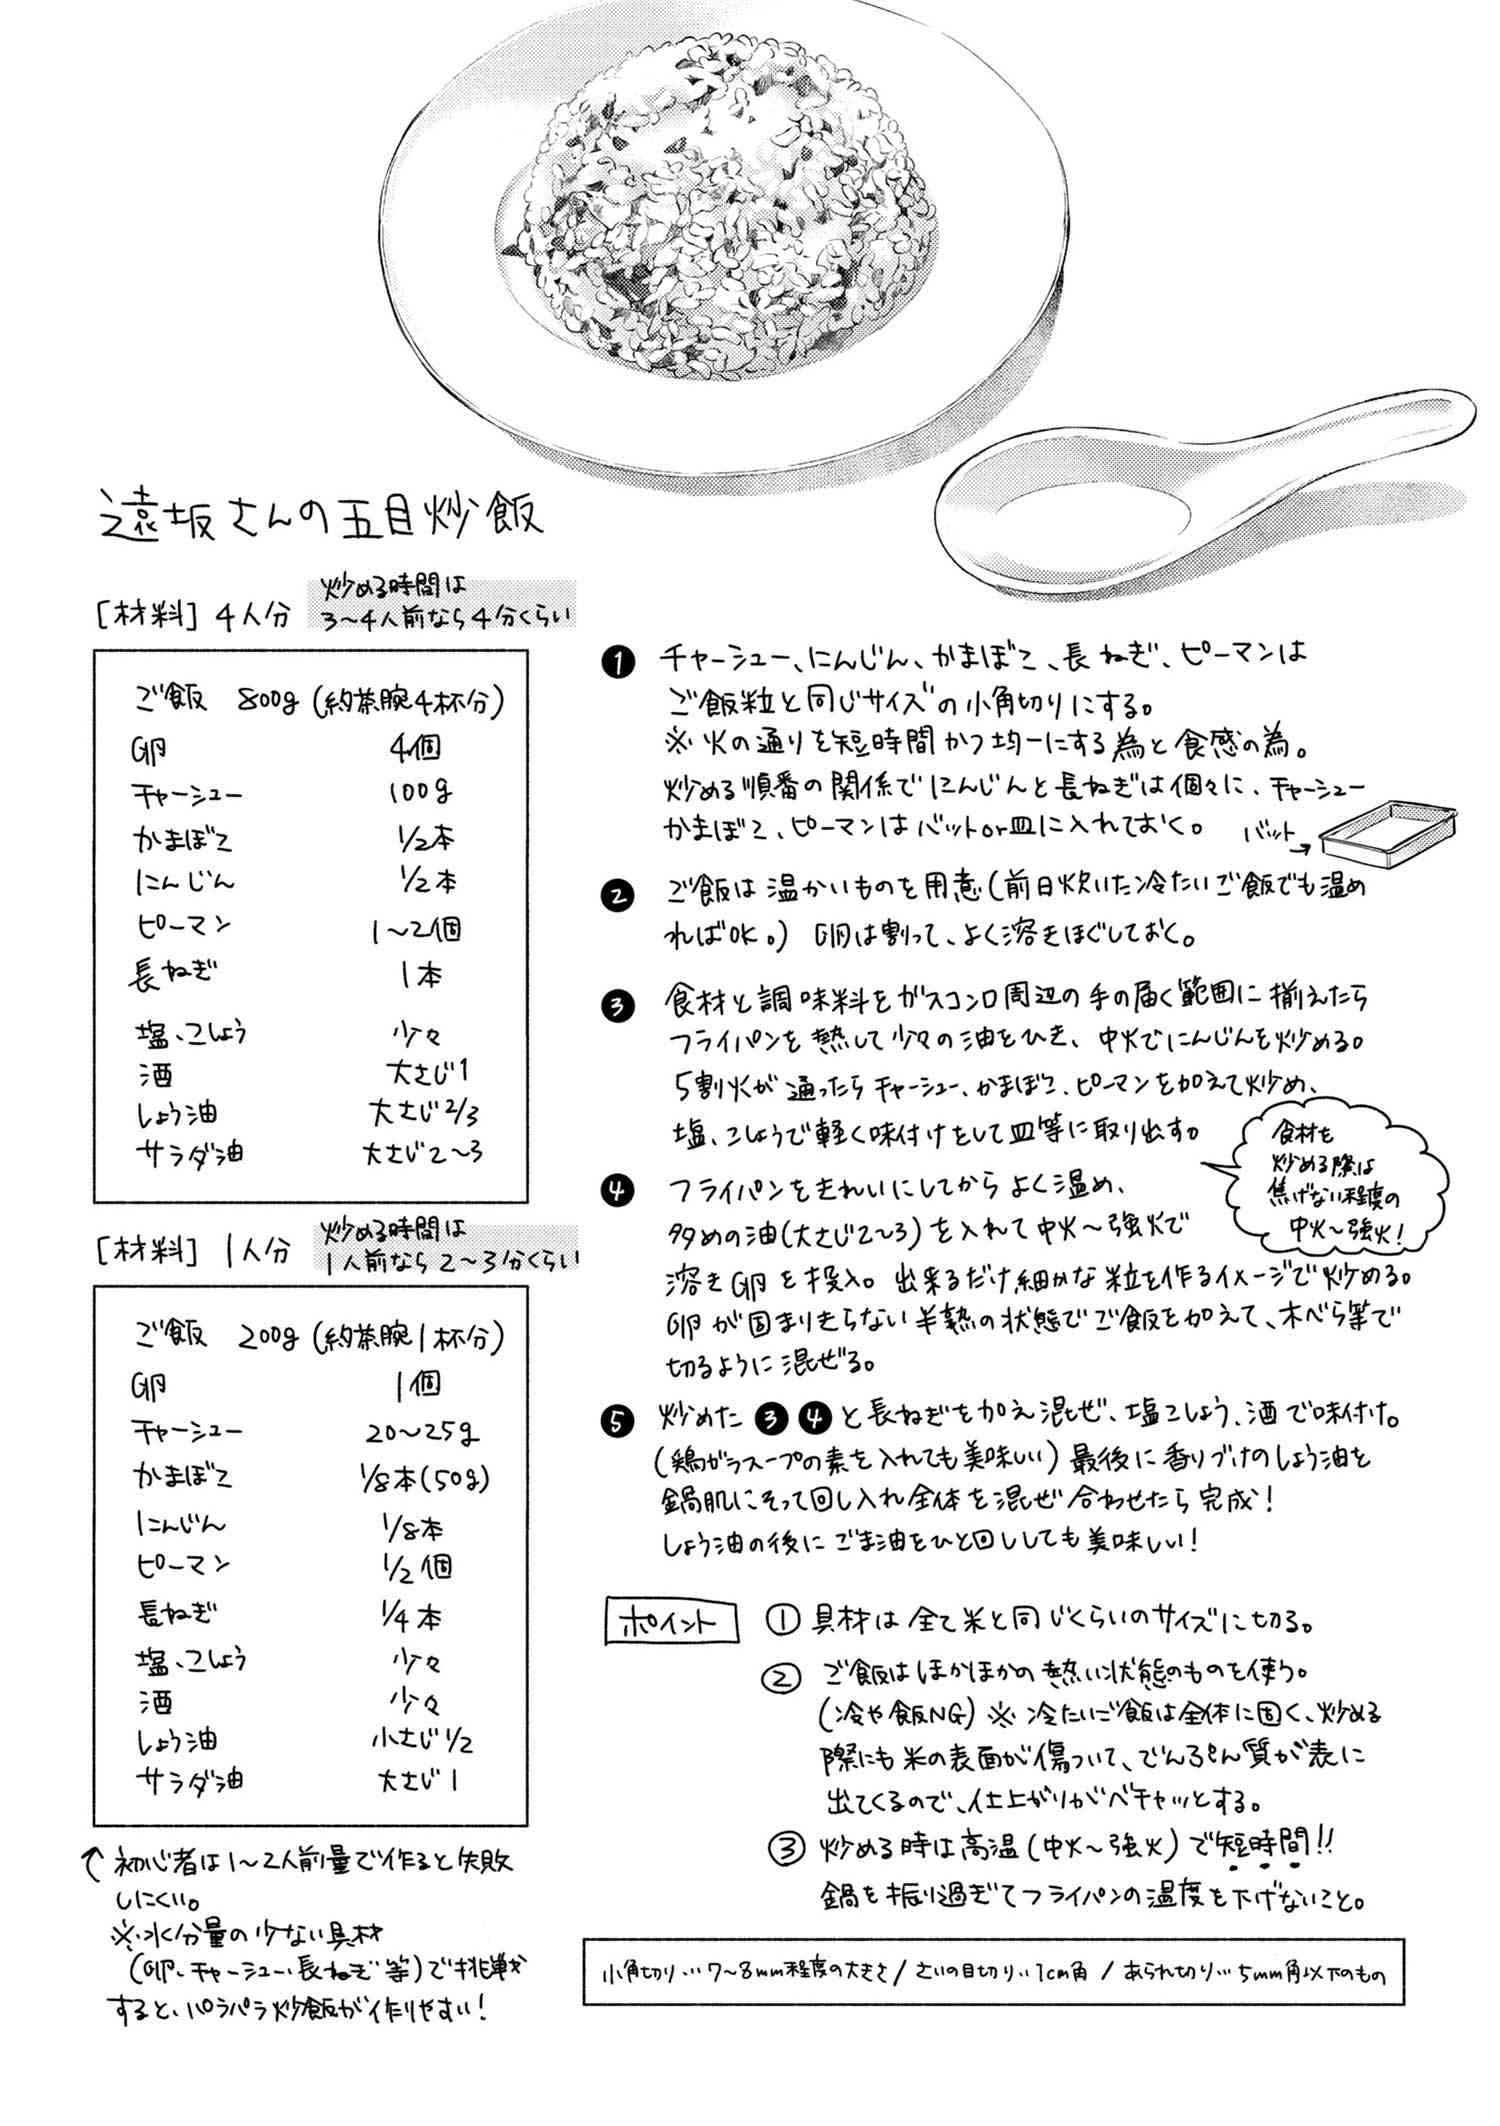 遠坂さんの五目炒飯
[材料] 4人分
炒める時間は
3〜4人前なら4分くらい
ご飯 800g (約茶腕4杯分)
卵 4個
チャーシュー 100g
かまぼこ 1/2本
にんじん 1/2本
ピーマン 1〜2個
長ねぎ 1本
塩、こしょう 少々
酒 大さじ1
しょう油 大さじ2/3
サラダ油 大さじ2〜3
[材料] 1人分
炒める時間は
1人前なら2〜3分くらい
ご飯 200g (約茶腕1杯分)
卵 1個
チャーシュー 20〜25g
かまぼこ 1/8本(50g)
にんじん 1/8本
ピーマン 1/2個
長ねぎ 1/4本
塩、こしょう 少々
酒 少々
しょう油 小さじ1/2
サラダ油 大さじ1
初心者は1〜2人前量で作ると失敗
しにくい。
※水分量の少ない具材
(卵、チャーシュー、長ねぎ等)で挑戦
すると、パラパラ炒飯が作りやすい!
❶ チャーシュー、にんじん、かまぼこ、長ねぎ、ピーマンは
ご飯粒と同じサイズの小角切りにする。
※火の通りを短時間かつ均一にする為と食感の為。
炒める順番の関係でにんじんと長ねぎは個々に、チャーシュー
かまぼこ、ピーマンはバットor皿に入れておく。
バット
❷ ご飯は温かいものを用意(前日炊いた冷たいご飯でも温め
ればOK。) 卵は割って、よく溶きほぐしておく。
❸ 食材と調味料をガスコンロ周辺の手の届く範囲に揃えたら
フライパンを熱して少々の油をひき、中火でにんじんを炒める。
5割火が通ったらチャーシュー、かまぼこ、ピーマンを加えて炒め、
塩、こしょうで軽く味付けをして皿等に取り出す。
食材を
炒める際は
焦げない程度の
中火〜強火!
❹ フライパンをきれいにしてからよく温め、
多めの油(大さじ2〜3)を入れて中火〜強火で
溶き卵を投入。出来るだけ細かな粒を作るイメージで炒める。
卵が固まりきらない半熟の状態でご飯を加えて、木べら等で
切るように混ぜる。
❺ 炒めた❸❹と長ねぎを加え混ぜ、塩こしょう、酒で味付け。
(鶏ガラスープの素を入れても美味しい)最後に香りづけのしょう油を
鍋肌にそって回し入れ全体を混ぜ合わせたら完成!
しょう油の後にごま油をひと回ししても美味しい!
ポイント
① 具材は全て米と同じくらいのサイズに切る。
② ご飯はほかほかの熱い状態のものを使う。
(冷や飯NG)※冷たいご飯は全体に固く、炒める
際にも米の表面が傷ついて、でんぷん質が表に
出てくるので、仕上がりがベチャッとする。
③ 炒める時は高温(中火〜強火)で短時間!!
鍋を振り過ぎてフライパンの温度を下げないこと。
小角切り…7〜8mm程度の大きさ/さいの目切り…1cm角/あられ切り…5mm角以下のもの